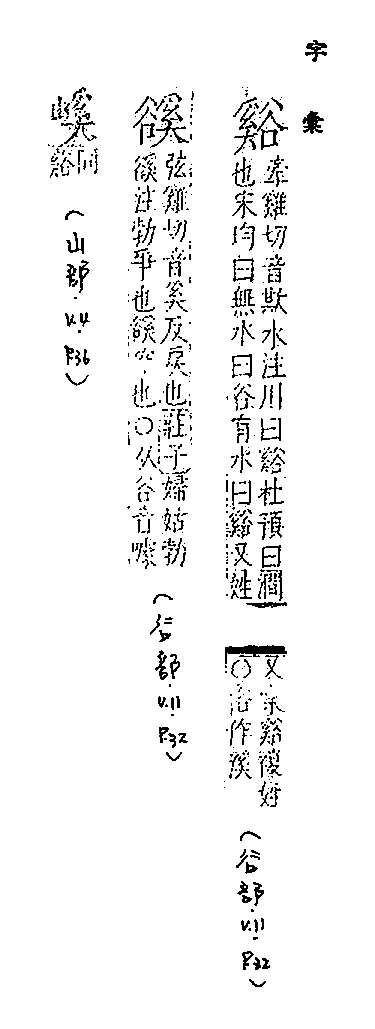 字彙
谿
牽雞切音欺水注川曰谿杜預曰澗
也宋均曰無水曰谷有水曰谿又姓
又
谿
○俗作溪
(谷部.V.11.P.32)
豀
弦雞切音奚反戾也莊子婦姑勃
豀註勃爭也豀 也○从谷音
(谷部.V.11.P.32)
嵠
同
谿
(山部.V.4.P.36)